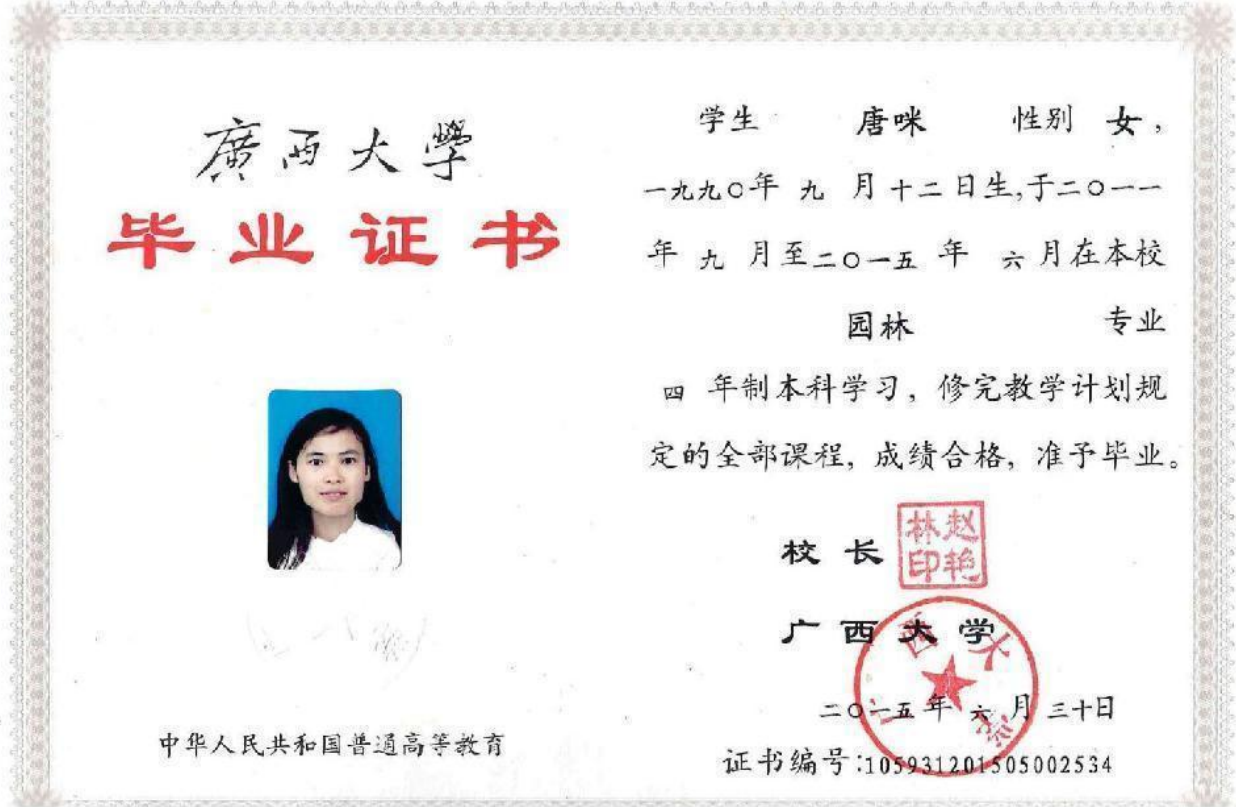 廣西大學
毕业证书
中华人民共和国普通高等教育
学生 唐咪 性别 女,
一九九〇年 九 月十二日生,于二〇一一
年 九 月至二〇一五 年 六月在本校
园林 专业
四 年制本科学习, 修完教学计划规
定的全部课程, 成绩合格, 准予毕业。
校长
赵艳林印
广西大学
广西大学
二〇一五年 六 月 三十日
证书编号:105931201505002534